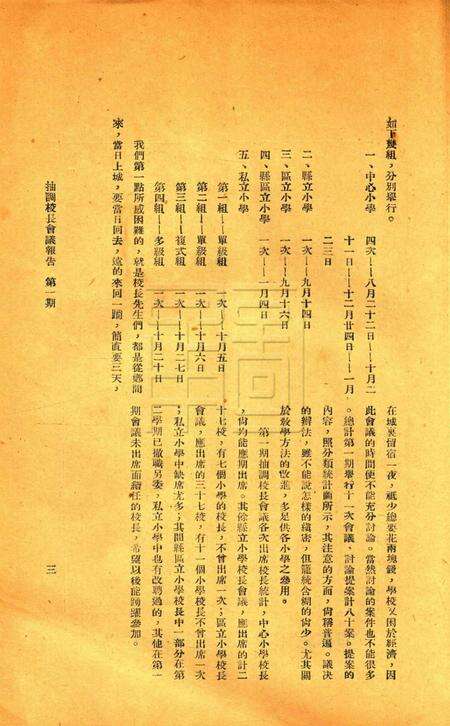 如下雙組，分別舉行。
一、中心小學　四次——八月二十二日——十月二
十一日——十二月廿四日——一月
二三日
二、縣立小學　一次——九月十四日
三、區立小學　一次——九月十六日
四、縣區立小學　一次——一月四日
五、私立小學
第一組——單級組　一次——十月五日
第二組——單級組　一次——十月六日
第三組——複式組　一次——十月二七日
第四組——多級組　一次——十月二十日
我們第一點所感困難的，就是校長先生們，都是從鄉間
來，當日上城，要當日回去，遠的來回一蹦，簡直要三天，
在城裏留宿一夜，祇少總要花兩塊錢，學校又困於經濟，因
此會議的時間便不能充分討論。當然討論的案件也不能很多
。總計第一期舉行十一次會議，討論提案計八十案。提案的
內容，照分類統計圖所示，其注意的方面，尙稱普遍。議決
的辦法，雖不能說怎樣的縝密，但籠統含糊的尙少。尤其關
於敎學方法的改進，多足供各小學之參用。
第一期抽調校長會議各次出席校長統計，中心小學校長
，尙均能應期出席。其餘縣立小學校長會議，應出席的計二
十七校，有七個小學的校長，不曾出席一次；區立小學校長
會議，應出席的三十七校，有十一個小學校長不曾出席一次
；私立小學中缺席尤多；其間縣區立小學校長中一部分在第
二學期已撤職另委，私立小學中也有改聘過的，其他在第一
期會議未出席而續任的校長，希望以後能踴躍參加。
抽調校長會議報告　第一期
三